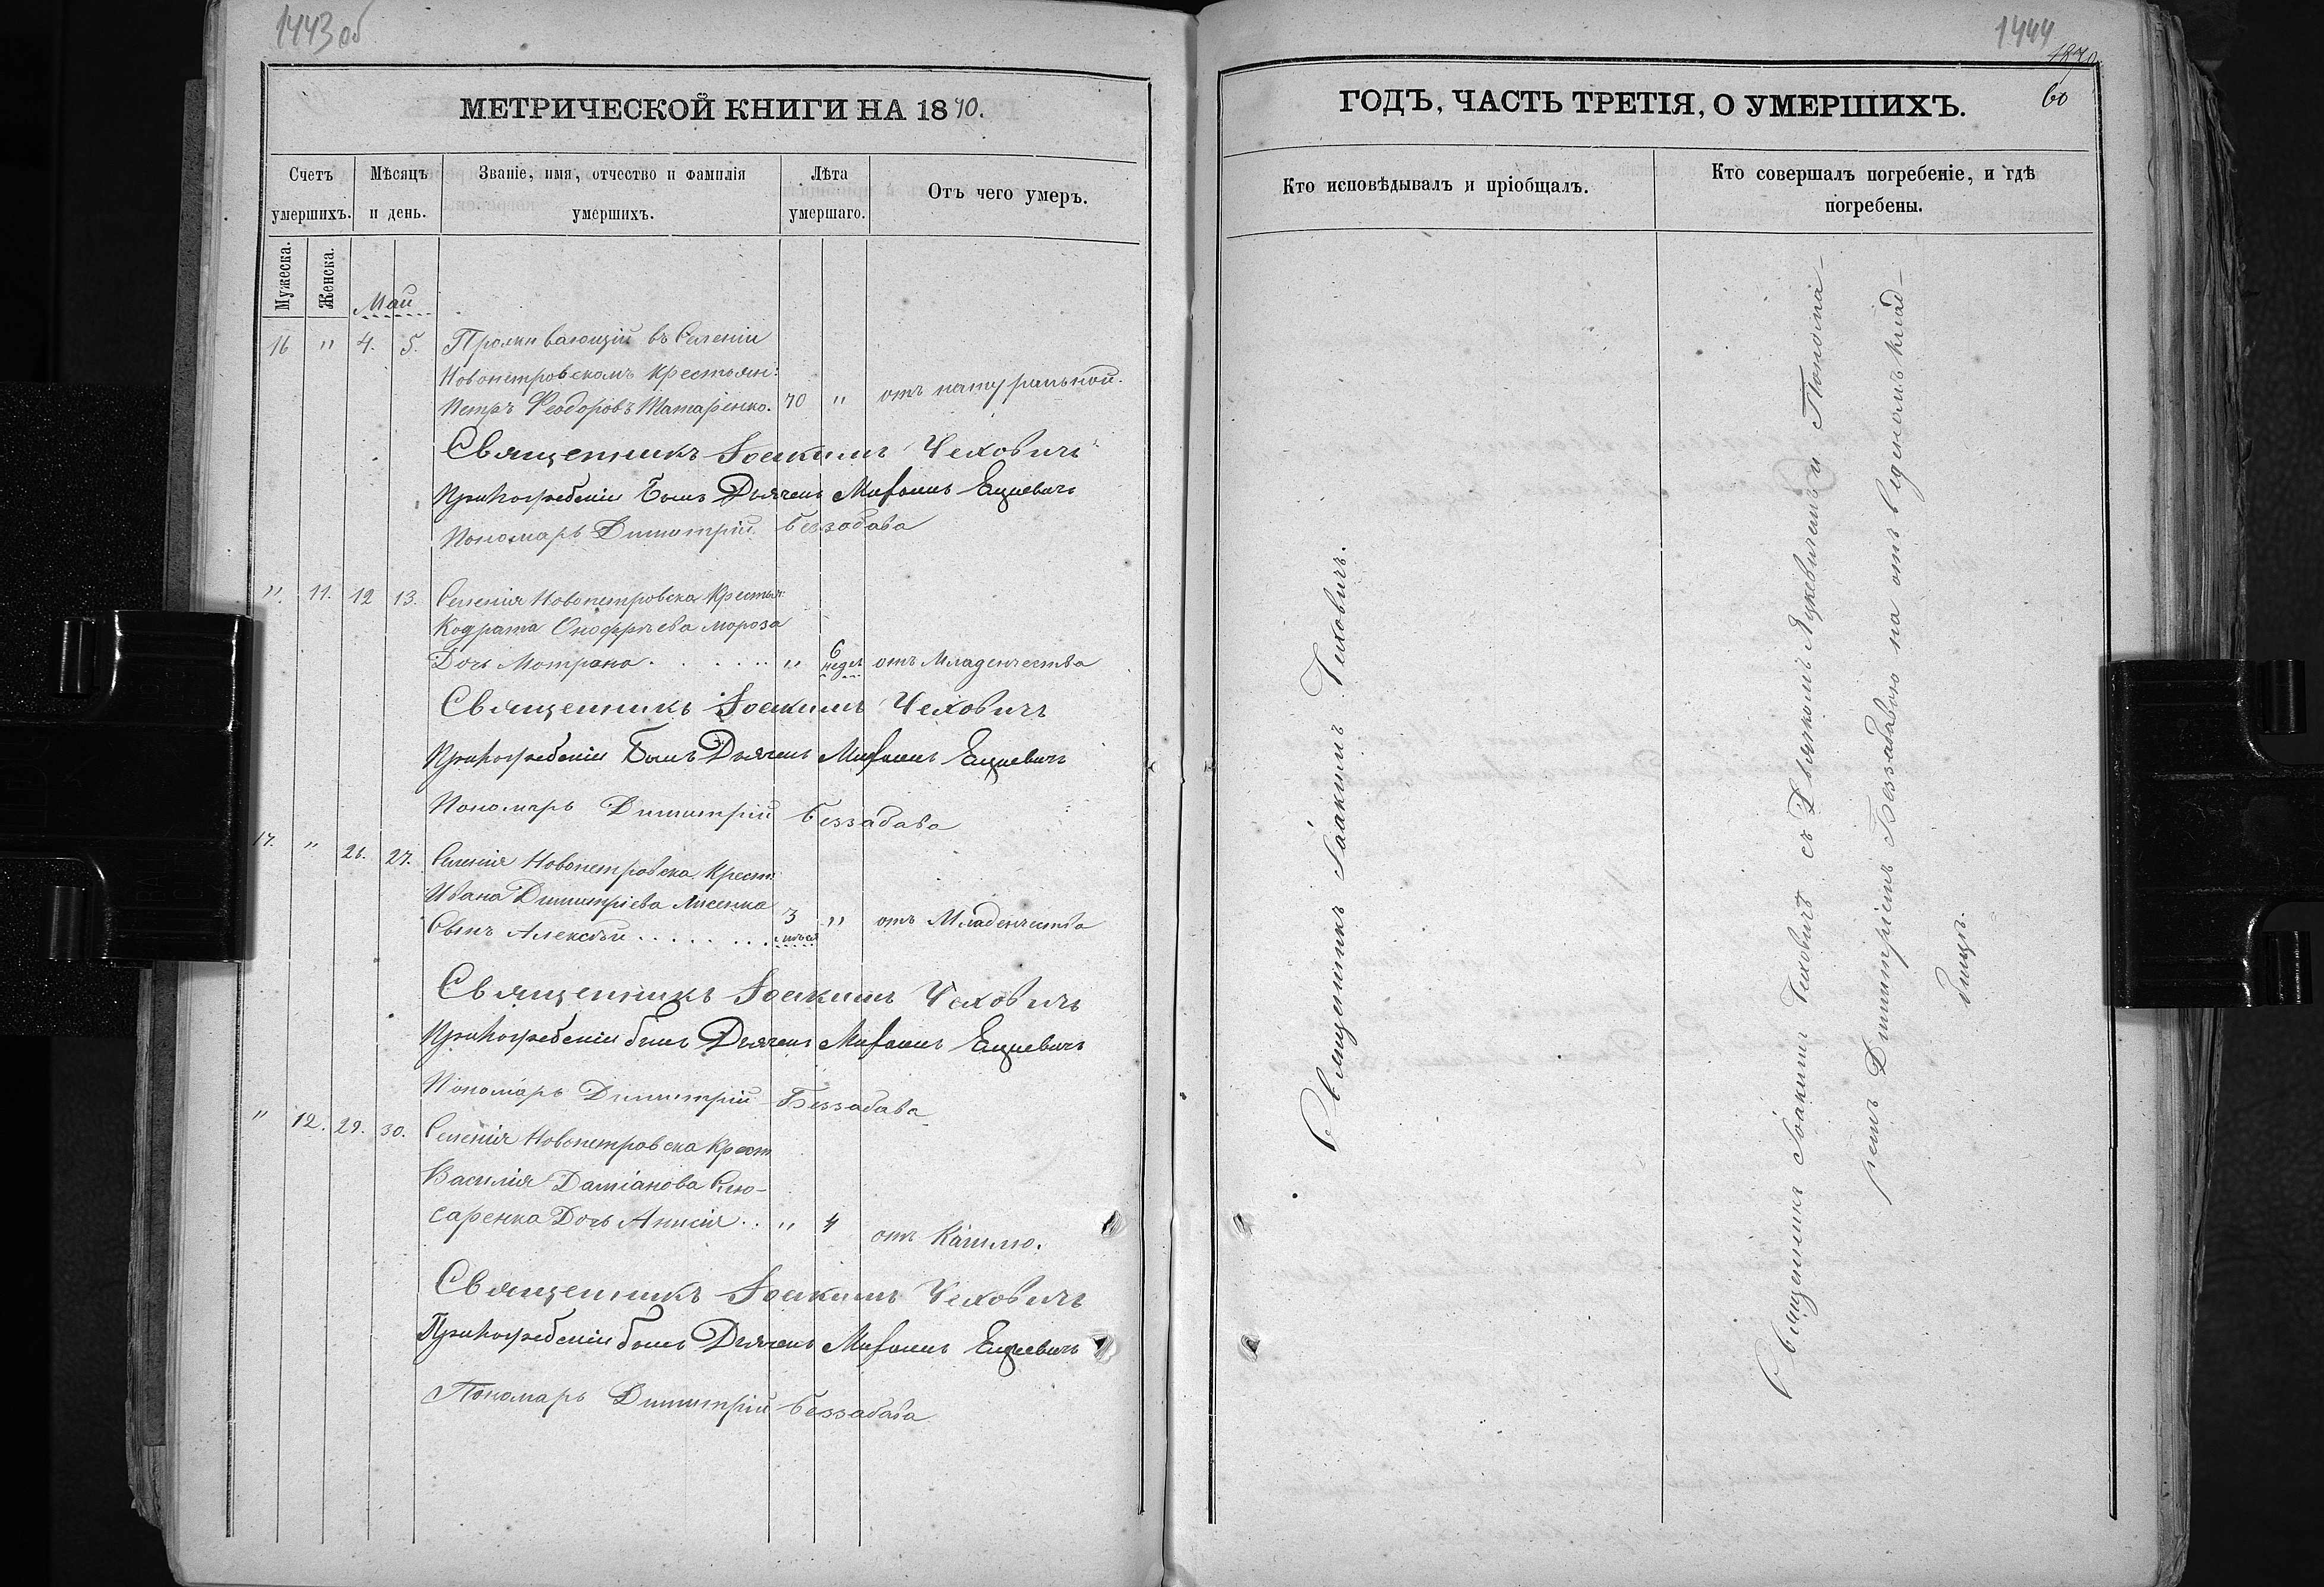 1443 об
МЕТРИЧЕСКОЙ КНИГИ НА 1870.
Счетъ умершихъ.
Мѣсяцъ и день.
Званіе, имя, отчество и фамилія умершихъ.
Лѣта умершаго.
Отъ чего умеръ.
Мужеска.
Женска.
Май
16 " 4. 5. Проживающій въ Селеніи
Новопетровскомъ крестьян:
Петръ Феодоровъ Татаренко. 70 " отъ натуральной.
Священникъ Іоакимъ Чеховичъ
При погребеніи былъ Дьячекъ
Пономарь Димитрій Беззабава
" 11. 12 13. Селенія Новопетровска Крестья:
Кодрата Онофріева Мороза
Дочь Мотрона . . . . . . " 6 недел отъ Младенчества
Священникъ Іоакимъ Чеховичъ
При погребеніи былъ Дьячекъ
Пономарь Димитрій Беззабава
17. " 26. 27. Селенія Новопетровска Крест:
Ивана Димитріева Лисенка
Сынъ Алексѣй . . . . . . . 3 " отъ Младенчества
Священникъ Іоакимъ Чеховичъ
При погребеніи былъ Дьячекъ
Пономарь Димитрій Беззабава
" 12. 29. 30. Селенія Новопетровска Крест
Василія Даміанова Слю-
саренка Дочь Анисія . . " 4 отъ Кашлю.
Священникъ Іоакимъ Чеховичъ
При погребеніи былъ Дьячекъ
Пономарь Димитрій Беззабава
1444
1870
60
ГОДЪ, ЧАСТЬ ТРЕТІЯ, О УМЕРШИХЪ.
Кто исповѣдывалъ и пріобщалъ.
Кто совершалъ погребеніе, и гдѣ погребены.
Священникъ Іоакимъ Чеховичъ.
Священникъ Іоакимъ Чеховичъ съ Дьячкомъ Яцкевичемъ и Понома-
ремъ Димитріемъ Беззабавою на отведеномъ клад-
бищѣ.